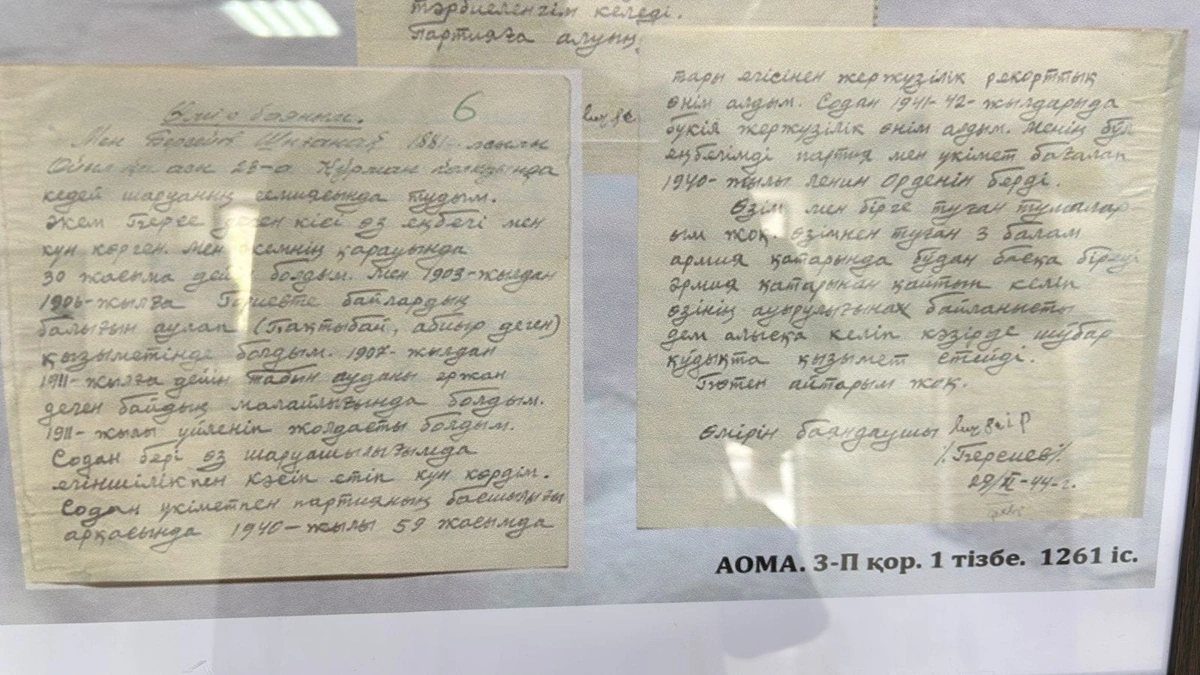 тәрбиеленгім келеді.
Партияға алуың
6
Өмір баяным.
Мен Берсиев Шығанақ 1881-жылы
Ойыл аск 23-а Құрман
кедей шаруаның семиасында тудым.
Әкем Берсе деген кісі өз еңбегі мен
күн көрген. Мен әкемнің қарауында
30 жасыма дейін болдым. Мен 1903-жылдан
1906-жылға Гориевте байлардың
балығын аулап (Бақтыбай, абиыр деген)
қызыметінде болдым. 1907-жылдан
1911-жылға дейін табын ауданы әржан
деген байдың малайлығында болдым.
1911-жылы үйленіп жолдасты болдым.
Содан бері өз шаруашылығымда
егіншілікпен кәсіп етіп күн көрдім.
Содан үкіметпен партияның басшылығы
арқасында 1940-жылы 59 жасымда
тары егісінен жержүзілік рекорттық
өнім алдым. Содан 1941-42-жылдарыда
бүкіл жержүзілік өнім алдым. Менің бұл
еңбегімді партия мен үкімет бағалап
1940-жылы Ленин Орденін берді.
Өзім мен бірге туған тумалар
ым жоқ. Өзімнен туған 3 балам
армия қатарында бұдан басқа біреуі
әрмия қатарынан қайтып келіп
өзінің ауырулығынах байланысты
дем алысқа келіп кәзірде шұбар
құдықта қызымет етейді.
Бөтен айтарым жоқ.
Өмірін баяндаушы
/Берсиев/
29/XI-44-г.
АОМА. 3-П қор. 1 тізбе. 1261 іс.